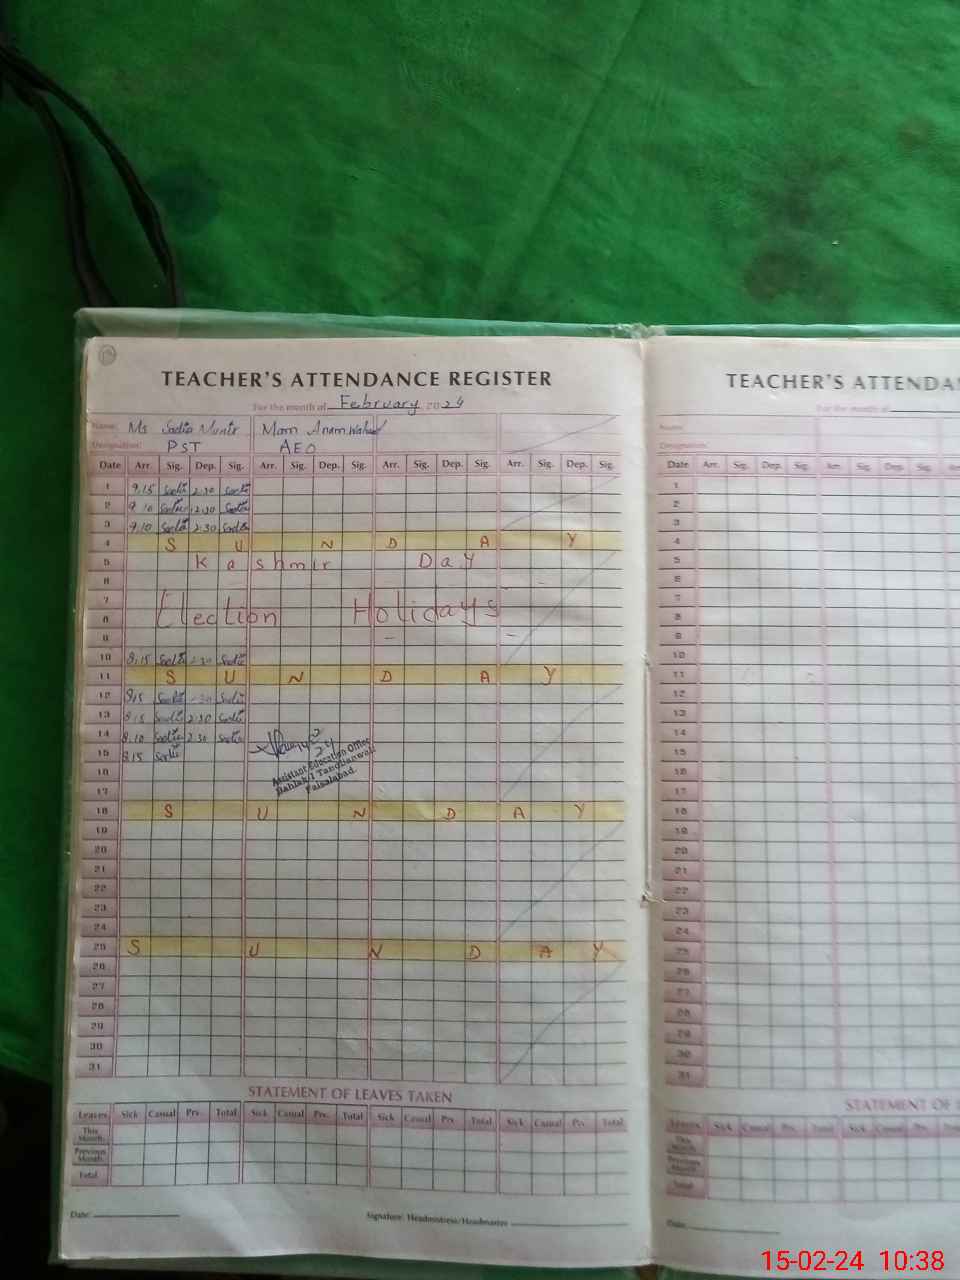 TEACHER'S ATTENDANCE REGISTER
For the month of February 2024
Name: Ms Sadia Munir Mam Anum
Designation: PST AEO
Date Arr. Sig. Dep. Sig. Arr. Sig. Dep. Sig. Arr. Sig. Dep. Sig. Arr. Sig. Dep. Sig.
1 9.15 Sadia 2:30 Sadia
2 9 10 Sadia 2:30 Sadia
3 9.10 Sadia 2:30 Sadia
4 S U N D A Y
5 Kashmir Day
6
7
8 Election Holidays
9
10 8:15 Sadia 2:30 Sadia
11 S U N D A Y
12 8:15 Sadia 2:30 Sadia
13 8:15 Sadia 2:30 Sadia
14 8:10 Sadia 2:30 Sadia
15 8:15 Sadia
Assistant Education Officer
Tandlianwali
Faisalabad.
16
17
18 S U N D A Y
19
20
21
22
23
24
25 S U N D A Y
26
27
28
29
30
31
STATEMENT OF LEAVES TAKEN
Leaves Sick Casual Prv. Total Sick Casual Prv. Total Sick Casual Prv. Total Sick Casual Prv. Total
This Month
Previous Month
Total
Date: Signature: Headmistress/Headmaster
TEACHER'S ATTENDA
For the month of
Name:
Designation:
Date Arr. Sig. Dep. Sig. Arr. Sig. Dep. Sig.
1
2
3
4
5
6
7
8
9
10
11
12
13
14
15
16
17
18
19
20
21
22
23
24
25
26
27
28
29
30
31
STATEMENT OF
Leaves Sick Casual Prv. Total Sick Casual Prv.
This Month
Previous Month
Total
Date:
15-02-24 10:38